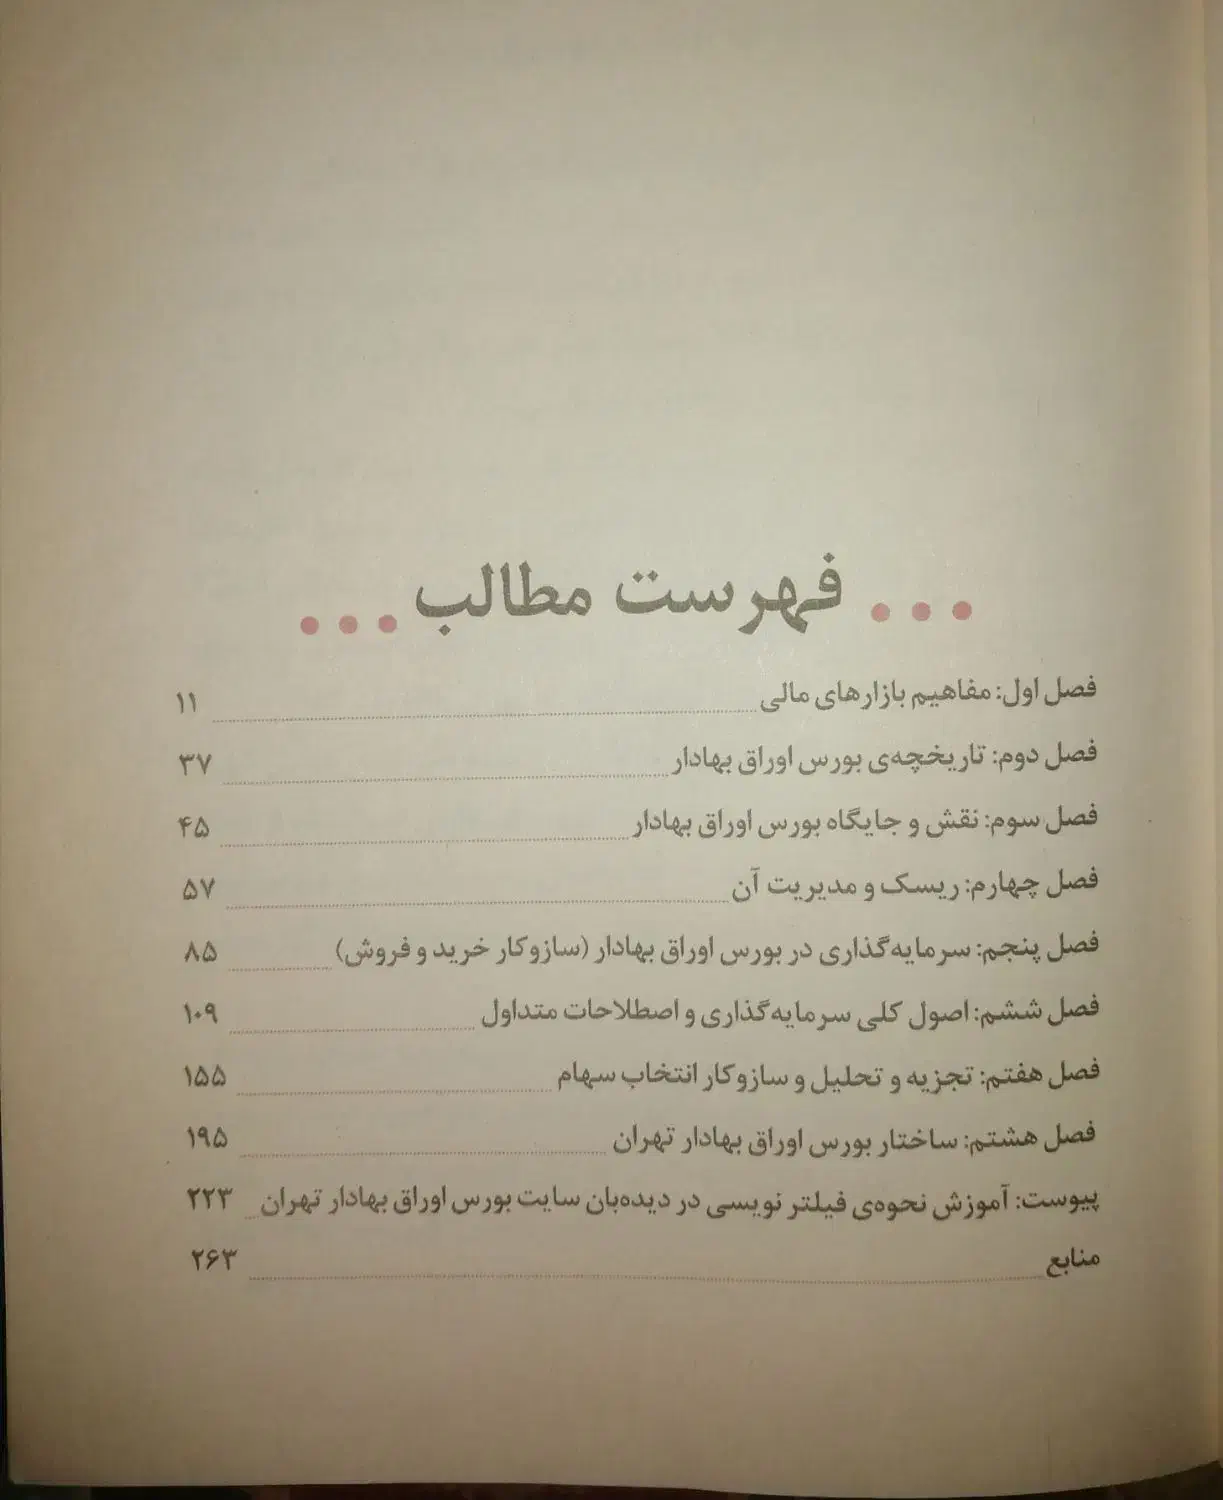 ... فهرست مطالب ...
فصل اول: مفاهیم بازارهای مالی ۱۱
فصل دوم: تاریخچه‌ی بورس اوراق بهادار ۳۷
فصل سوم: نقش و جایگاه بورس اوراق بهادار ۴۵
فصل چهارم: ریسک و مدیریت آن ۵۷
فصل پنجم: سرمایه‌گذاری در بورس اوراق بهادار (سازوکار خرید و فروش) ۸۵
فصل ششم: اصول کلی سرمایه‌گذاری و اصطلاحات متداول ۱۰۹
فصل هفتم: تجزیه و تحلیل و سازوکار انتخاب سهام ۱۵۵
فصل هشتم: ساختار بورس اوراق بهادار تهران ۱۹۵
پیوست: آموزش نحوه‌ی فیلتر نویسی در دیده‌بان سایت بورس اوراق بهادار تهران ۲۲۳
منابع ۲۶۳